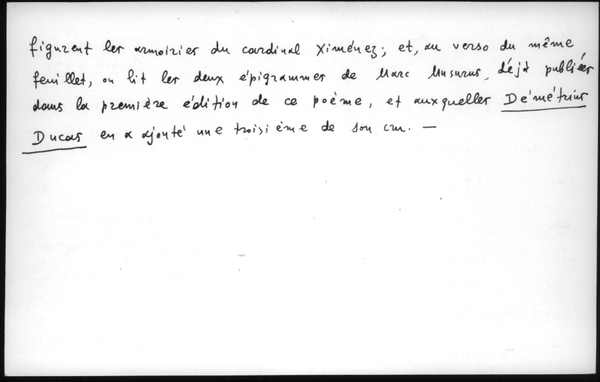 figurent les armoiries du cardinal Ximénez; et, au verso du même
feuillet, on lit les deux épigrammes de Marc Musurus, déjà publiées
dans la première édition de ce poème, et auxquelles Démétrius
Ducas en a ajouté une troisième de son cru. —